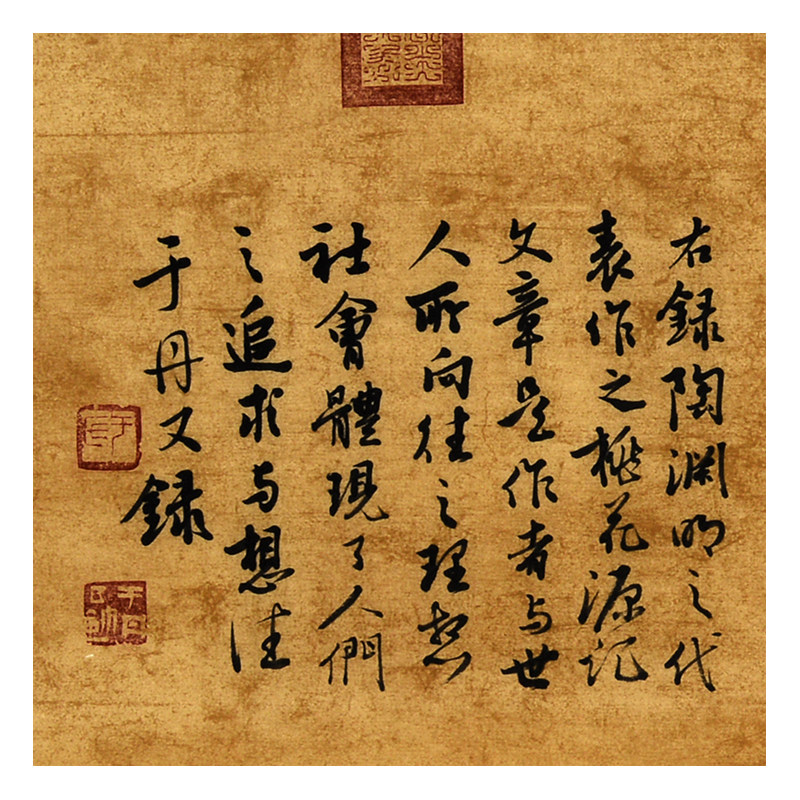 右録陶渊明之代
表作之桃花源记
文章是作者与世
人所向往之理想
社會體現了人們
之追求与想往
于丹又録